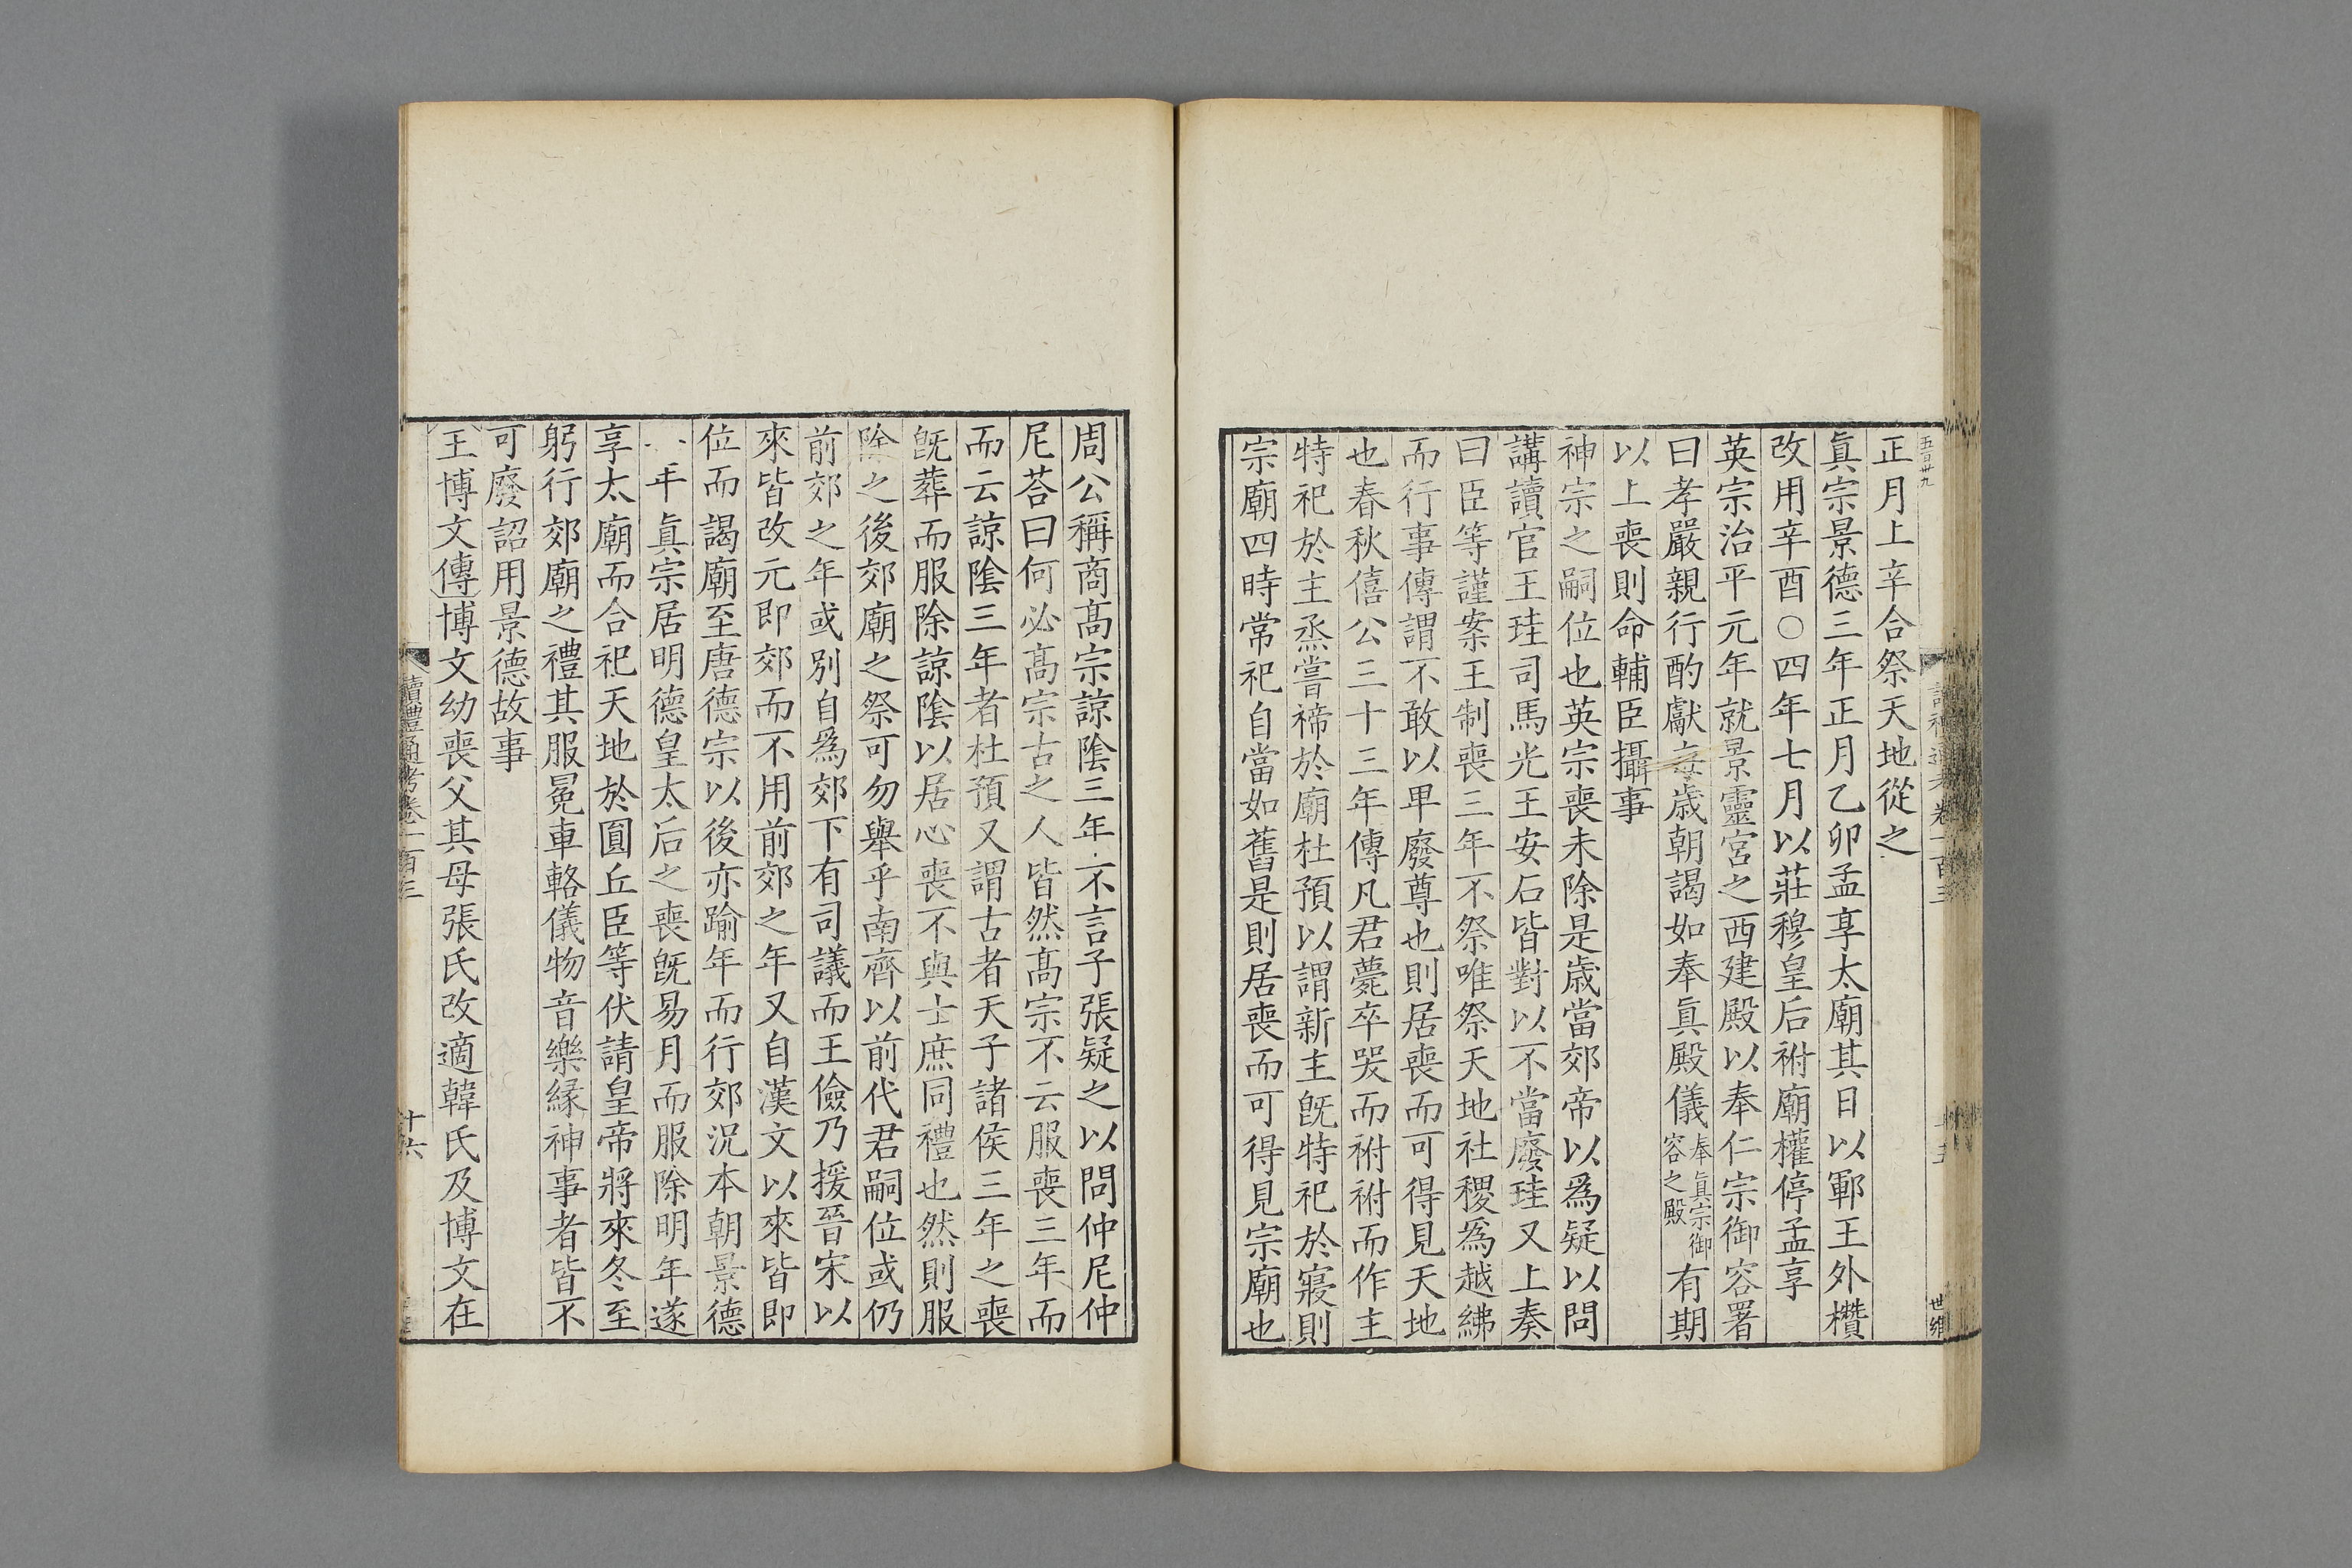 五百卅九
正月上辛合祭天地從之
眞宗景德三年正月乙卯孟享太廟其日以鄆王外欑
改用辛酉○四年七月以莊穆皇后祔廟權停孟享
英宗治平元年就景靈宮之西建殿以奉仁宗御容署
曰孝嚴親行酌獻每歲朝謁如奉眞殿儀奉眞宗御容之殿有期
以上喪則命輔臣攝事
神宗之嗣位也英宗喪未除是歲當郊帝以爲疑以問
講讀官王珪司馬光王安石皆對以不當廢珪又上奏
曰臣等謹案王制喪三年不祭唯祭天地社稷爲越紼
而行事傳謂不敢以卑廢尊也則居喪而可得見天地
也春秋僖公三十三年傳凡君薨卒哭而祔祔而作主
特祀於主烝嘗禘於廟杜預以謂新主旣特祀於寢則
宗廟四時常祀自當如舊是則居喪而可得見宗廟也
周公稱商髙宗諒陰三年不言子張疑之以問仲尼仲
尼荅曰何必髙宗古之人皆然髙宗不云服喪三年而
而云諒陰三年者杜預又謂古者天子諸侯三年之喪
旣葬而服除諒陰以居心喪不與士庶同禮也然則服
除之後郊廟之祭可勿舉乎南齊以前代君嗣位或仍
前郊之年或別自爲郊下有司議而王儉乃援晉宋以
來皆改元即郊而不用前郊之年又自漢文以來皆即
位而謁廟至唐德宗以後亦踰年而行郊况本朝景德
年眞宗居明德皇太后之喪旣易月而服除明年遂
享太廟而合祀天地於圓丘臣等伏請皇帝將來冬至
躬行郊廟之禮其服冕車輅儀物音樂緣神事者皆不
可廢詔用景德故事
王博文傳博文幼喪父其母張氏改適韓氏及博文在
讀禮通考卷一百三
十六